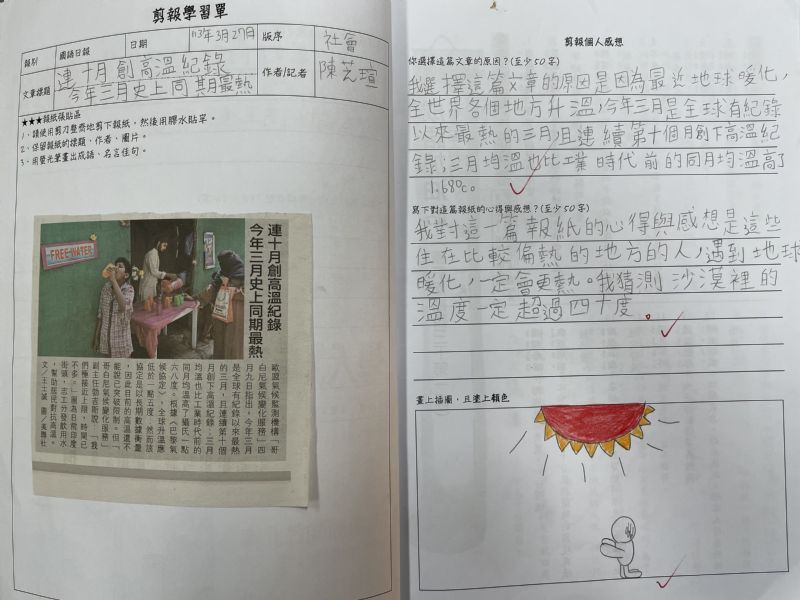 剪報學習單
報別
國語日報
日期
113年3月27日
版序
社會
文章標題
連十月創高溫紀錄
今年三月史上同期最熱
作者/記者
陳芝瑄
★★★報紙張貼區
1、請使用剪刀整齊地剪下報紙，然後用膠水貼牢。
2、保留報紙的標題、作者、圖片。
3、用螢光筆畫出成語、名言佳句。
FREE WATER
連十月創高溫紀錄
今年三月史上同期最熱
歐盟氣候監測機構「哥
白尼氣候變化服務」四
月九日指出，今年三月
是全球有紀錄以來最熱
的三月，且連續第十個
月創下高溫紀錄；三月
均溫也比工業時代前的
同月均溫高了攝氏一點
六八度。根據《巴黎氣
候協定》，全球升溫應
低於一點五度；然而該
協定是以長期數據衡量
，因此目前的高溫還不
能說已突破限制。但「
哥白尼氣候變化服務」
副主任勃吉斯說：「我
們極接近上限，時間已
不多。」圖為日前印度
街頭，志工分發飲用水
，幫助居民對抗高溫。
文／王士誠 圖／美聯社
剪報個人感想
你選擇這篇文章的原因？(至少50字)
我選擇這篇文章的原因是因為最近地球暖化，
全世界各個地方升溫，今年三月是全球有紀錄
以來最熱的三月，且連續第十個月創下高溫紀
錄；三月均溫也比工業時代前的同月均溫高了
1.68°C。
寫下對這篇報紙的心得與感想？(至少50字)
我對這一篇報紙的心得與感想是這些
住在比較偏熱的地方的人，遇到地球
暖化，一定會更熱。我猜測沙漠裡的
溫度一定超過四十度。
畫上插圖，且塗上顏色